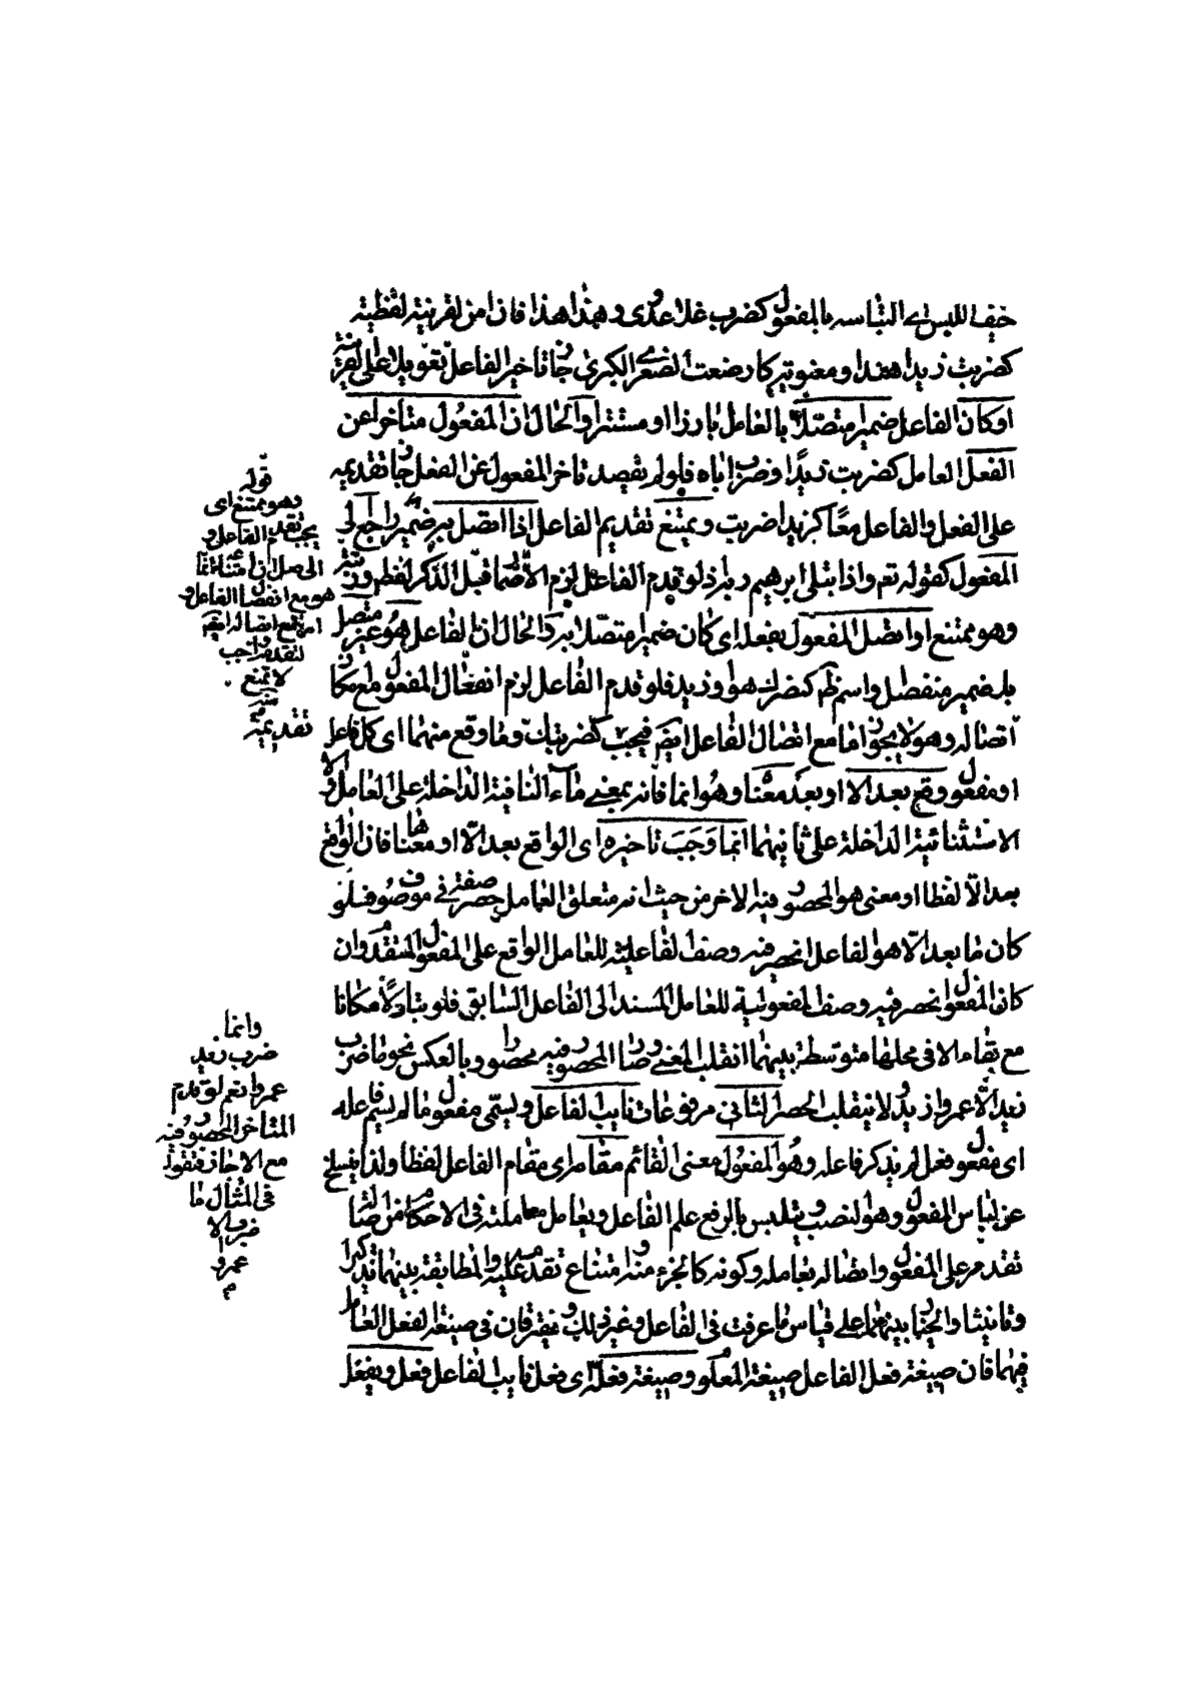 خيف اللبس اى التباسه بالمفعول كضرب غلامى عدوى وهذا هذا فان امن لقرينة لفظية
كضربت زيدا هند او معنوية كارضعت الصغرى الكبرى جاز تاخير الفاعل تعويلا على القرينة
او كان الفاعل ضميرا متصلا بالعامل بارزا او مستترا والحال ان المفعول متاخر عن
الفعل العامل كضربت زيدًا وضرب اباه فلو لم يقصد تاخر المفعول عن الفعل جاز تقديمه
على الفعل والفاعل معًا كزيدا ضربت ويمتنع تقديم الفاعل اذا اتصل به ضمير راجع الى
المفعول كقوله تعم واذ ابتلى ابرهيم ربه اذ لو تقدم الفاعل لزم الاضمار قبل الذكر لفظا ورتبة
وهو ممتنع او اتصل المفعول بفعله اى كان ضميرا متصلا به والحال ان الفاعل هو غير متصل
بل ضمير منفصل واسم ظم كضربك هو او زيد فلو قدم الفاعل لزم انفصال المفعول مع امكان
اتصاله وهو لا يجوز اما مع اتصال الفاعل ايضم فيجب كضربتك وما وقع منهما اى كل فاعل
او مفعول وقع بعد الا او بعد معناها وهو انما فانه بمعنى ماء النافية الداخلة على العامل والا
الاستثنائية الداخلة على ثانيهما انما وَجَبَ تاخيره اى الواقع بعد الا او معناها فان الواقع
بعد الا لفظا او معنى هو المحصور فيه الاخر من حيث انه متعلق العامل حصر صفة فى موصوف فلو
كان ما بعد الا هو الفاعل انحصر فيه وصف الفاعلية للعامل الواقع على المفعول المتقدم وان
كان المفعول انحصر فيه وصف المفعولية للعامل المسند الى الفاعل السابق فلو تبادلا مكانا
مع بقاء الا فى محلها متوسطة بينهما انقلب المعنى وصار المحصور فيه محصورا وبالعكس نحو ما ضرب
زيد الا عمروا زيدٌ لانقلب الحصر الثانى مرفوعات نايب الفاعل ويسمى مفعول ما لم يسم فاعله
اى مفعول فعل لم يذكر فاعله وهو المفعول معنى القائم مقامه اى مقام الفاعل لفظا ولذا ينسلخ
عن لباس المفعول وهو النصب ويتلبس بالرفع علم الفاعل ويعامل معاملته فى الاحكام من اصالة
تقدمه على المفعول واتصاله بعامله وكونه كالجزء منه وامتناع تقدمه عليه والمطابقة بينهما تذكيرا
وتانيثا والخيار بينهما على قياس ما عرفت فى الفاعل وغير ذلك ويفترقان فى صيغة الفعل العامل
فيهما فان صيغة فعل الفاعل صيغة المعلوم وصيغة فعله اى فعل نايب الفاعل فعل ويفعل
قوله
وهو ممتنع اى
يجب تقديم الفاعل و
هو مع انفصال الفاعل و
لتقدم واجب
لا تمنع
منه
تقديمه
وانما
ضرب زيد
عمروا نعم لو قدم
المتاخر المحصور فيه
مع الا جاز فتقول
فى المثال ما
ضرب الا
عمروا
م